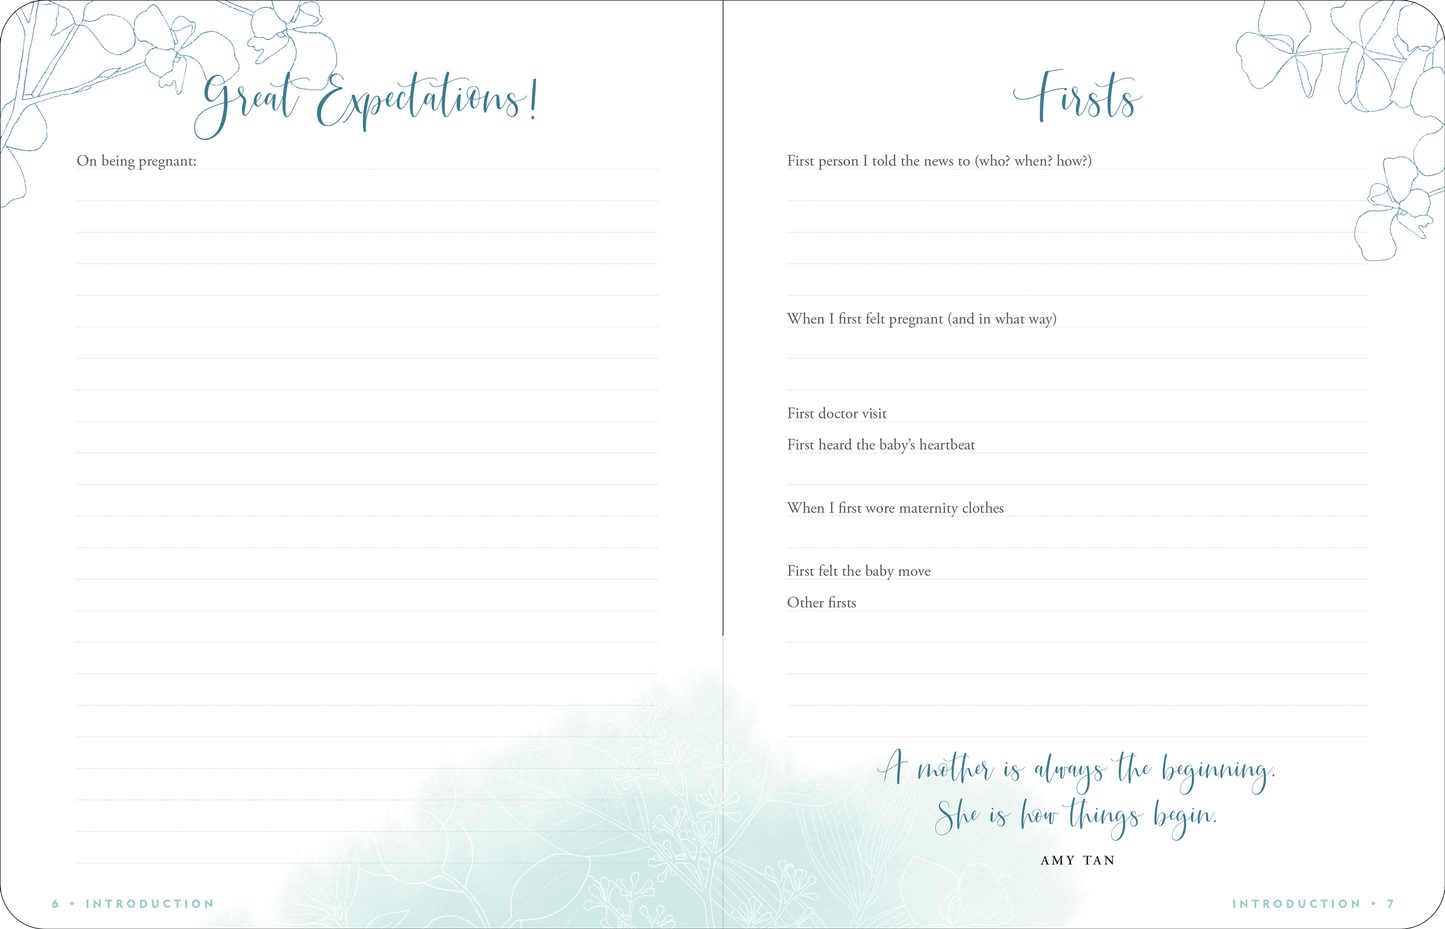 Great Expectations!
On being pregnant:
6 • INTRODUCTION
Firsts
First person I told the news to (who? when? how?)
When I first felt pregnant (and in what way)
First doctor visit
First heard the baby’s heartbeat
When I first wore maternity clothes
First felt the baby move
Other firsts
A mother is always the beginning.
She is how things begin.
AMY TAN
INTRODUCTION • 7